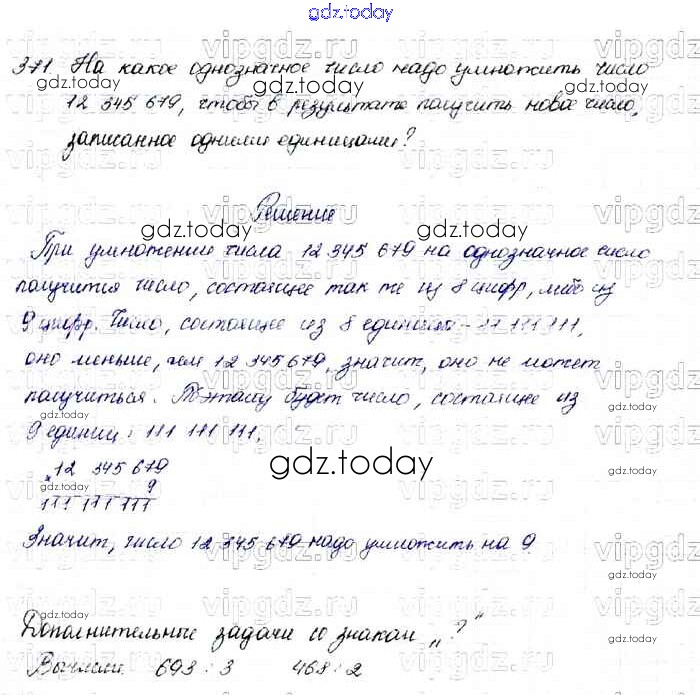 gdz.today
371. На какое однозначное число надо умножить число
12 345 679, чтобы в результате получить новое число,
записанное одними единицами?
Решение
При умножении числа 12 345 679 на однозначное число
получится число, состоящее так же из 8 цифр, либо из
9 цифр. Число, состоящее из 8 единиц – 11 111 111,
оно меньше, чем 12 345 679, значит, оно не может
получиться. Поэтому будет число, состоящее из
9 единиц: 111 111 111.
× 12 345 679
9
111 111 111
Значит, число 12 345 679 надо умножить на 9
Дополнительные задачи со знаком „?"
Вычисли. 693 : 3 468 : 2